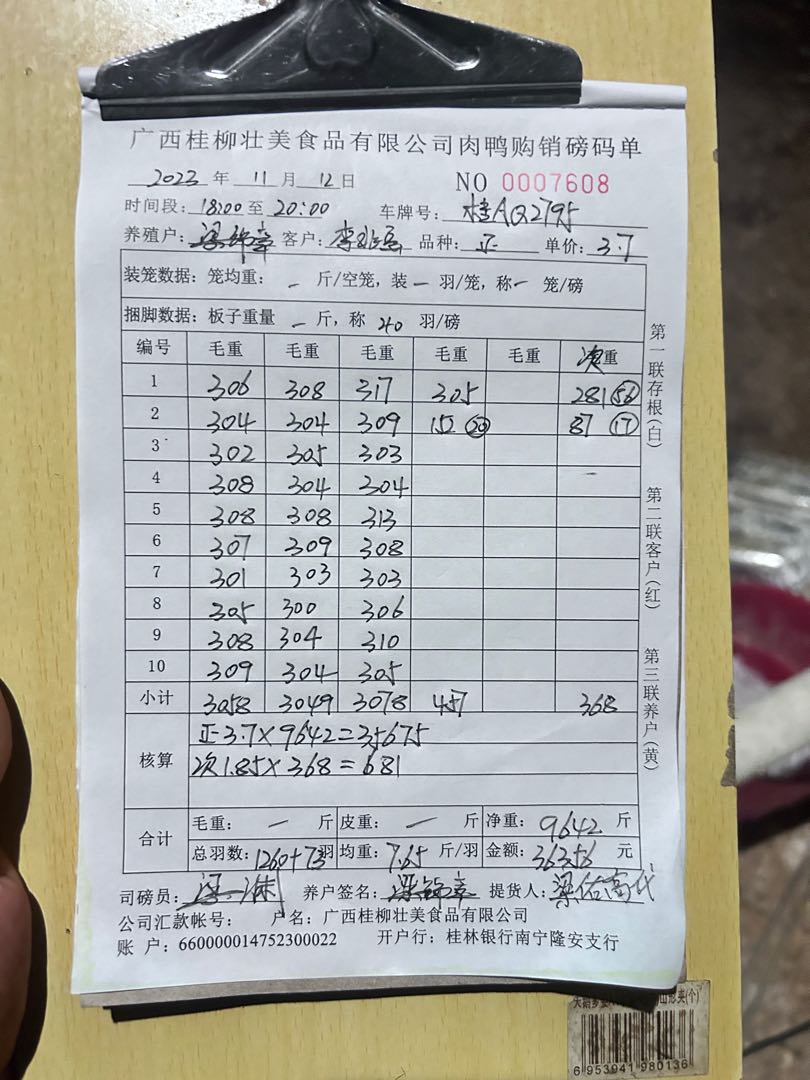 广西桂柳壮美食品有限公司肉鸭购销磅码单
2023 年 11 月 12 日 NO 0007608
时间段: 18:00 至 20:00 车牌号: 桂AQ2795
养殖户: 客户: 品种: 正 单价: 3.7
装笼数据: 笼均重: - 斤/空笼, 装 - 羽/笼, 称 - 笼/磅
捆脚数据: 板子重量 - 斤, 称 40 羽/磅
编号 毛重 毛重 毛重 毛重 毛重 次重
1 306 308 317 305 281 56
2 304 304 309 152 20 87 17
3 302 305 303
4 308 304 304
5 308 308 313
6 307 309 308
7 301 303 303
8 305 300 306
9 308 304 310
10 309 304 305
小计 3058 3049 3078 457 368
核算
正 3.7×9642=35675
次 1.85×368=681
合计
毛重: — 斤 皮重: — 斤 净重: 9642 斤
总羽数: 1260+73 羽 均重: 7.65 斤/羽 金额: 36356 元
司磅员: 养户签名: 提货人: 梁佑高代
公司汇款帐号: 户名: 广西桂柳壮美食品有限公司
账 户: 660000014752300022 开户行: 桂林银行南宁隆安支行
第一联存根(白)
第二联客户(红)
第三联养户(黄)
6 953941 980136